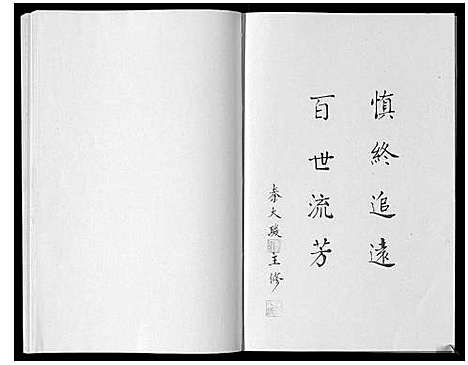 慎終追遠
百世流芳
秦大駿主修